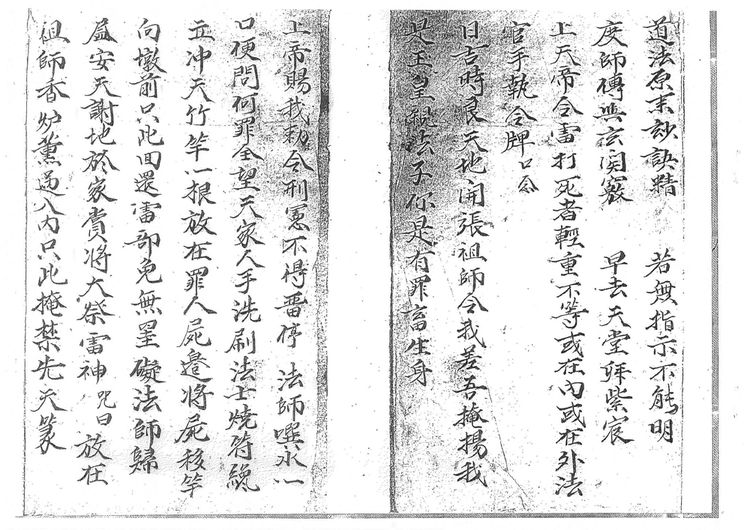 道法原来玅訣精　若無指示不能明
度師傳與玄関竅　早去天堂拜紫宸
上天帝令雷打死者輕重不等或在内或在外法
官手執令牌口念
日吉時良天地開張祖師令我差吾掩揚我
是玉皇親法子你是有罪畜生身
上帝賜我勅令刑憲不得畱停　法師噀水一
口便問何罪全望天家人手洗刷法士燒符纔
立冲天竹竿一根放在罪人屍邉將屍移竿
向墩前只此回還雷部免無罣礙法師歸
安天謝地於家賞將大祭雷神咒曰　放在
祖師香炉薰過入内只此掩禁先天篆